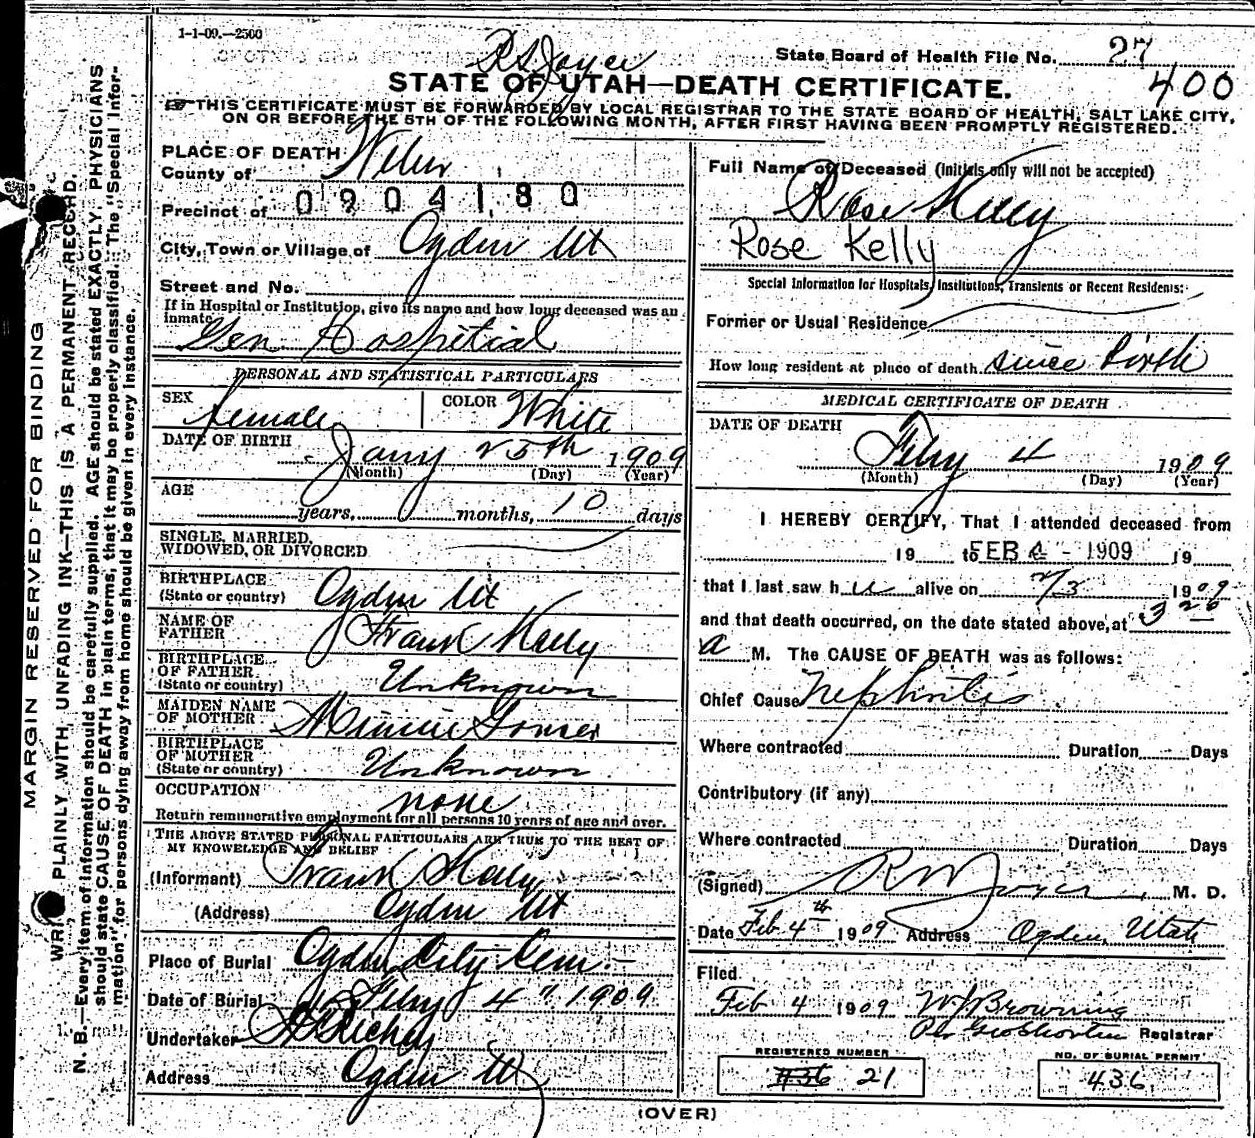 1-1-09.—2500
R S Joyce
State Board of Health File No. 27
400
STATE OF UTAH—DEATH CERTIFICATE.
THIS CERTIFICATE MUST BE FORWARDED BY LOCAL REGISTRAR TO THE STATE BOARD OF HEALTH, SALT LAKE CITY,
ON OR BEFORE THE 5TH OF THE FOLLOWING MONTH, AFTER FIRST HAVING BEEN PROMPTLY REGISTERED.
MARGIN RESERVED FOR BINDING
PLAINLY WITH UNFADING INK—THIS IS A PERMANENT RECORD.
N. B.—Every item of information should be carefully supplied. AGE should be stated EXACTLY. PHYSICIANS
should state CAUSE OF DEATH in plain terms, that it may be properly classified. The "Special Infor-
mation" for persons dying away from home should be given in every instance.
PLACE OF DEATH
County of Weber
Precinct of 0904180
City, Town or Village of Ogden Ut
Street and No.
If in Hospital or Institution, give its name and how long deceased was an
inmate
Gen Hospitial
PERSONAL AND STATISTICAL PARTICULARS
SEX female COLOR White
DATE OF BIRTH Jany 25th 1909
(Month) (Day) (Year)
AGE
years, months, 10 days
SINGLE, MARRIED,
WIDOWED, OR DIVORCED
BIRTHPLACE
(State or country) Ogden Ut
NAME OF
FATHER Frank Kelly
BIRTHPLACE
OF FATHER
(State or country) Unknown
MAIDEN NAME
OF MOTHER Minnie
BIRTHPLACE
OF MOTHER
(State or country) Unknown
OCCUPATION none
Return remunerative employment for all persons 10 years of age and over.
THE ABOVE STATED PERSONAL PARTICULARS ARE TRUE TO THE BEST OF
MY KNOWELEDGE AND BELIEF
(Informant) Frank Kelly
(Address) Ogden Ut
Place of Burial Ogden City Cem.
Date of Burial Feby 4" 1909
Undertaker Richey
Address Ogden Ut
Full Name of Deceased (Initials only will not be accepted)
Rose Kelly
Rose Kelly
Special Information for Hospitals, Institutions, Transients or Recent Residents:
Former or Usual Residence
How long resident at place of death since birth
MEDICAL CERTIFICATE OF DEATH
DATE OF DEATH
Feby 4 1909
(Month) (Day) (Year)
I HEREBY CERTIFY, That I attended deceased from
19 to FEB 4 - 1909 19
that I last saw h er alive on 2/3 1909
and that death occurred, on the date stated above, at 3 20
a M. The CAUSE OF DEATH was as follows:
Chief Cause Nephritis
Where contracted Duration Days
Contributory (if any)
Where contracted Duration Days
(Signed) M. D.
Date Feb 4th 1909 Address Ogden, Utah
Filed
Feb 4 1909 W J Browning
Per Registrar
REGISTERED NUMBER
#36 21
NO. OF BURIAL PERMIT
436
(OVER)